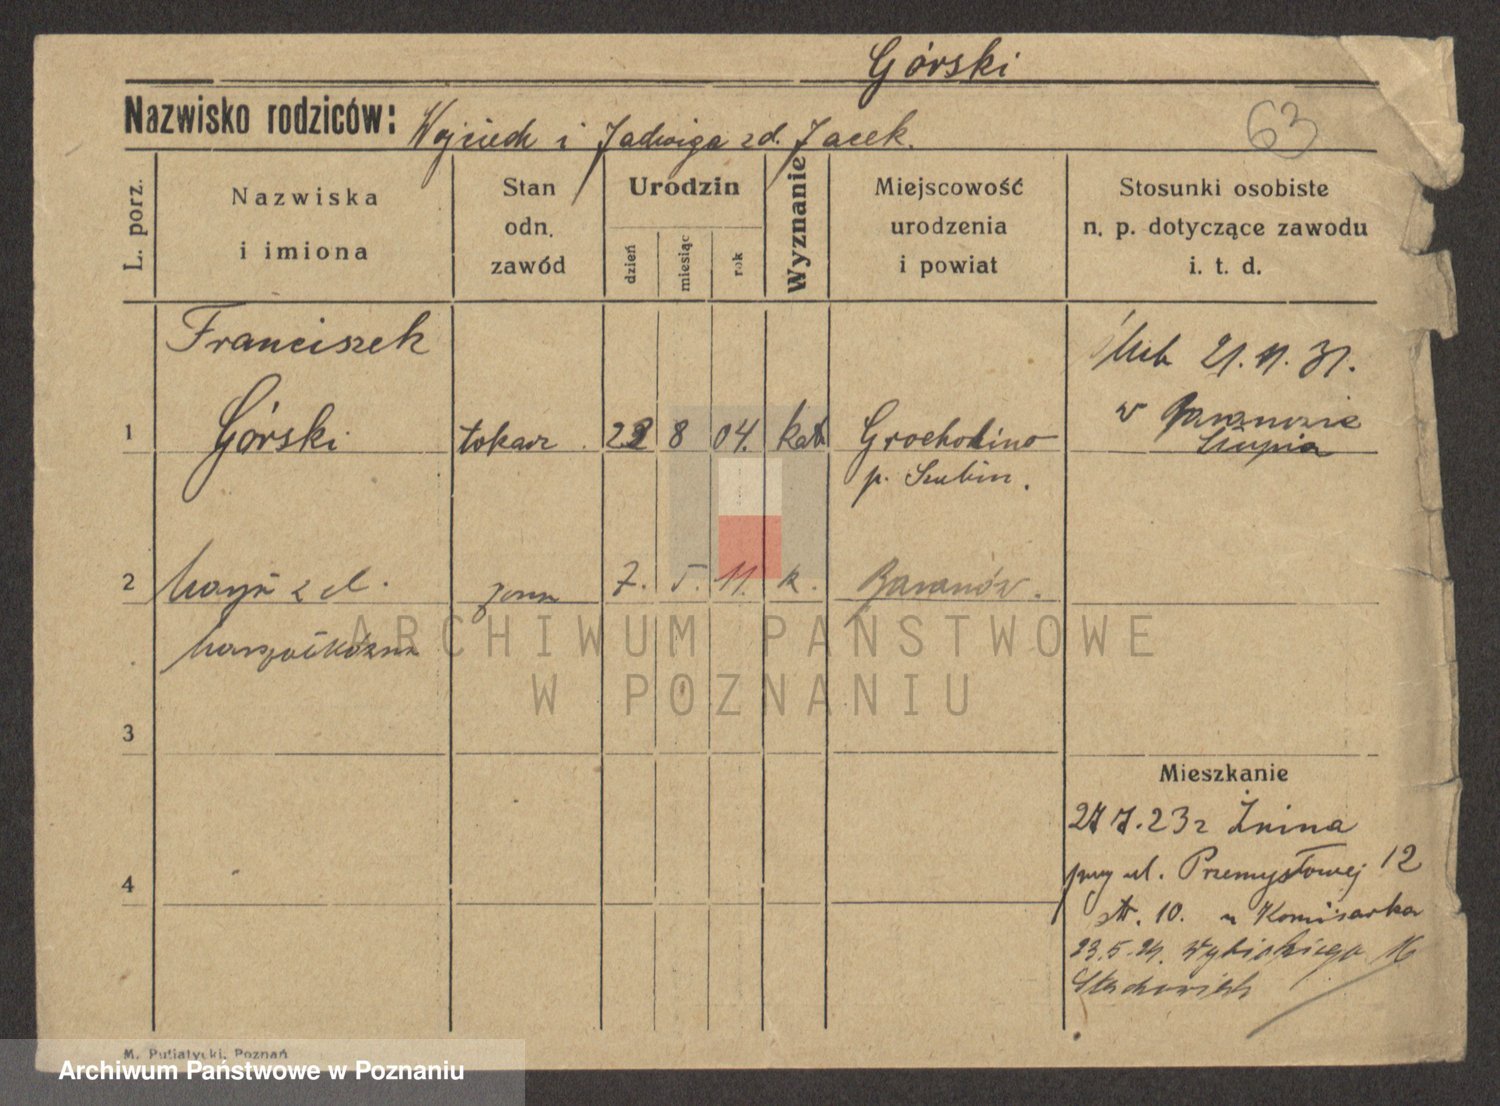 Górski
Nazwisko rodziców: Wojciech i Jadwiga zd. Jacek.
63
L. porz.
Nazwiska
i imiona
Stan
odn.
zawód
Urodzin
dzień
miesiąc
rok
Wyznanie
Miejscowość
urodzenia
i powiat
Stosunki osobiste
n. p. dotyczące zawodu
i. t. d.
Franciszek
ślub 21.11.31.
w
1 Górski tokarz 22 8 04. kat Grocholino
Słupia
p. Szubin.
2 Marja z d. żona 7. 5. 11. k. Baranów.
Marszałkówna
ARCHIWUM PAŃSTWOWE
W POZNANIU
3
Mieszkanie
27 7.23 z Żnina
4
przy ul. Przemysłowej 12
st. 10. u Komisarka
23.5.24. Wybickiego 16
Stachowiak
M. Putiatycki, Poznań
Archiwum Państwowe w Poznaniu